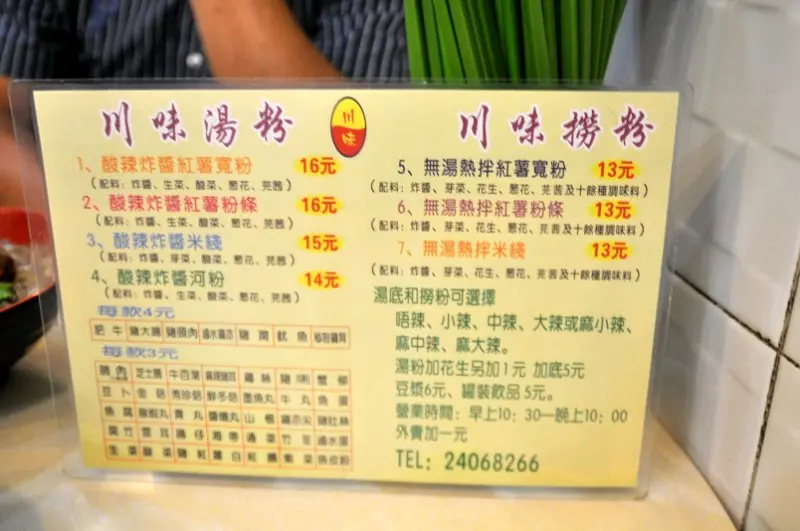 川味湯粉
1、酸辣炸醬紅薯寬粉 16元
(配料：炸醬、生菜、酸菜、葱花、芫茜)
2、酸辣炸醬紅薯粉條 16元
(配料：炸醬、生菜、酸菜、葱花、芫茜)
3、酸辣炸醬米綫 15元
(配料：炸醬、生菜、酸菜、葱花、芫茜)
4、酸辣炸醬河粉 14元
(配料：炸醬、生菜、酸菜、葱花、芫茜)
每款4元
肥牛 豬大腸 豬頭肉 豬潤 魷魚
每款3元
腩肉 芝士腸 牛百葉 雞絲 蟹柳
豆卜 金菇 秀珍菇 鮮冬菇 墨魚丸 牛丸 魚蛋
魚腐 貢丸 豬肚絲
腐竹 雲耳 海帶 滷水蛋
生菜 酸菜 豬紅 紫菜 魚皮餃
川味
川味撈粉
5、無湯熱拌紅薯寬粉 13元
(配料：炸醬、芽菜、花生、葱花、芫茜及十餘種調味料)
6、無湯熱拌紅薯粉條 13元
(配料：炸醬、芽菜、花生、葱花、芫茜及十餘種調味料)
7、無湯熱拌米綫 13元
(配料：炸醬、芽菜、花生、葱花、芫茜及十餘種調味料)
湯底和撈粉可選擇
唔辣、小辣、中辣、大辣或麻小辣、
麻中辣、麻大辣。
湯粉加花生另加1元 加底5元
豆漿6元、罐裝飲品5元。
營業時間：早上10：30—晚上10：00
外賣加一元
TEL：24068266